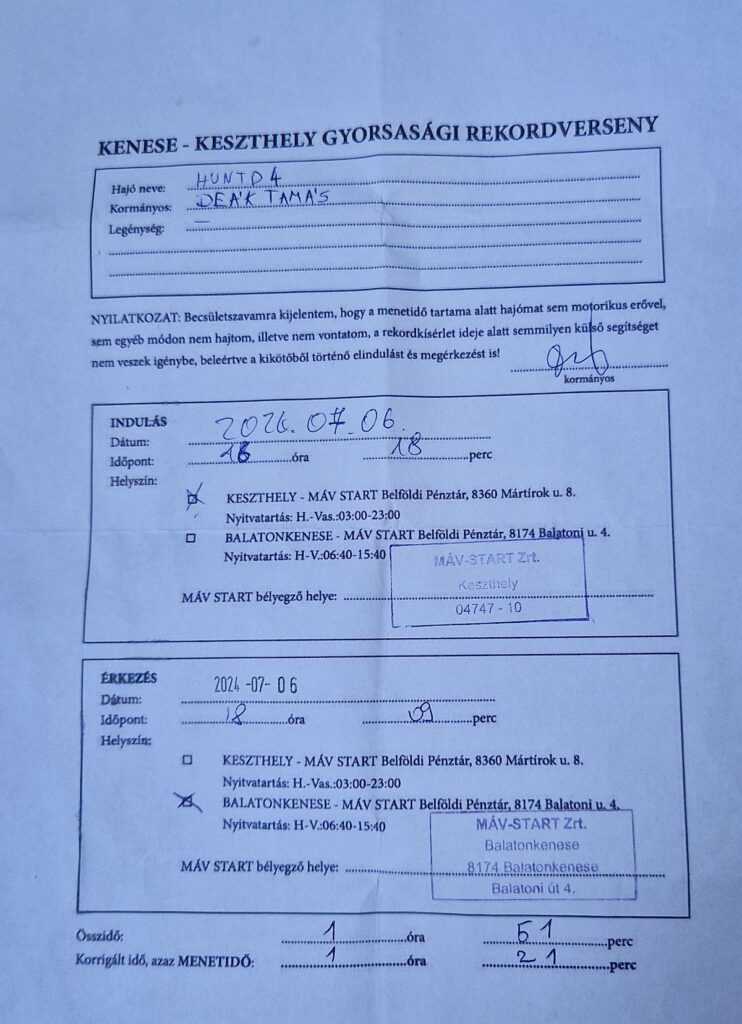 KENESE - KESZTHELY GYORSASÁGI REKORDVERSENY
Hajó neve: HUNTD4
Kormányos: DEÁK TAMÁS
Legénység: –
NYILATKOZAT: Becsületszavamra kijelentem, hogy a menetidő tartama alatt hajómat sem motorikus erővel,
sem egyéb módon nem hajtom, illetve nem vontatom, a rekordkísérlet ideje alatt semmilyen külső segítséget
nem veszek igénybe, beleértve a kikötőből történő elindulást és megérkezést is!
kormányos
INDULÁS
Dátum: 2024.07.06.
Időpont: 16 óra 18 perc
Helyszín:
KESZTHELY - MÁV START Belföldi Pénztár, 8360 Mártírok u. 8.
Nyitvatartás: H.-Vas.:03:00-23:00
BALATONKENESE - MÁV START Belföldi Pénztár, 8174 Balatoni u. 4.
Nyitvatartás: H-V.:06:40-15:40
MÁV-START Zrt.
Keszthely
MÁV START bélyegző helye:
04747 - 10
ÉRKEZÉS
Dátum: 2024-07-06
Időpont: 18 óra 09 perc
Helyszín:
KESZTHELY - MÁV START Belföldi Pénztár, 8360 Mártírok u. 8.
Nyitvatartás: H.-Vas.:03:00-23:00
BALATONKENESE - MÁV START Belföldi Pénztár, 8174 Balatoni u. 4.
Nyitvatartás: H-V.:06:40-15:40
MÁV-START Zrt.
Balatonkenese
MÁV START bélyegző helye:
8174 Balatonkenese
Balatoni út 4.
Összidő: 1 óra 51 perc
Korrigált idő, azaz MENETIDŐ: 1 óra 21 perc